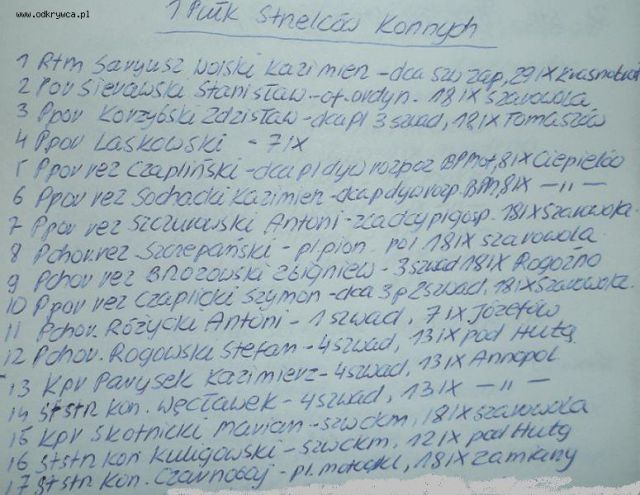 www.odkrywca.pl
1 Pułk Strzelców Konnych
1 Rtm Saryusz Wolski Kazimierz - dca szw zap, 29 IX Krasnobród
2 Por Sierawski Stanisław - of. ordyn. 18 IX Szarowola
3 Ppor Korzybski Zdzisław - dca pl 3 szwad, 18 IX Tomaszów
4 Ppor Laskowski - 7 IX
5 Ppor rez Czapliński - dca pl dyw rozpoz BPMot, 8 IX Ciepielów
6 Ppor rez Sochacki Kazimierz - dca p dyw rozp. BPM, 8 IX — „ —
7 Ppor rez Szczurowski Antoni - 18 IX Szarowola
8 Pchor. rez. Szczepański - pl. pion. 18 IX Szarowola
9 Pchor rez Brzozowski Zbigniew - 3 szwad 18 IX Rogoźno
10 Ppor rez Czaplicki Szymon - dca 3 p 2 szwad, 18 IX Szarowola
11 Pchor. Różycki Antoni - 1 szwad, 7 IX Józefów
12 Pchor. Rogowski Stefan - 4 szwad, 13 IX pod Hutą
13 Kpr Parysek Kazimierz - 4 szwad, 13 IX Annopol
14 St strz kon. Węcławek - 4 szwad, 13 IX — „ —
15 Kpr Skotnicki Marian - szw ckm, 18 IX Szarowola
16 St strz kon Kuligowski - szw ckm, 12 IX pod Hutą
17 St strz kon. Czarnobaj - pl. 18 IX Zamiany